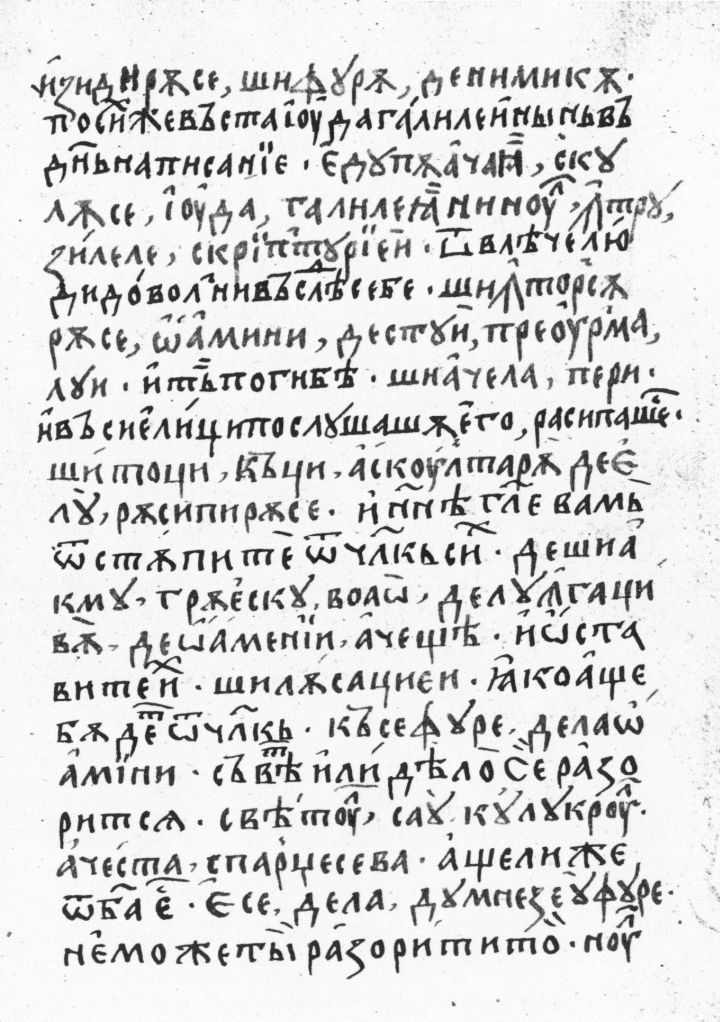 и҆зидирѫсе, шифꙋрѫ, денимикѫ·
посйже въста і҆оу҆да галилеи҆ныньвъ
дн҃ьнаписанїе · є҆дꙋпѫа҆чаꙗ҆, скꙋ
лѫсе, і҆оу҆да, галилеꙗ҆нинꙋл, ꙟ҆трꙋ,
зилеле, скрїптꙋрїеи · ѿвлѣчелю́
дидо́волнивъслѣсебе · шиꙟ҆торсѫ
рѫсе, ѡ҆а҆мини, деспꙋи, преоу҆рма,
луи · и҆тъ̀погибѣ · шиа҆чела, пери·
и҆въсиели́ципослꙋшашѫе҆го, расипаше҆·
шитоци, къци, а҆скоу҆лтарѫ дее҆
лꙋ, рѫсипирѫсе · и҆н҃нѣ гл҃е вамь
ѿстѫпите ѿчл҃кьси · дешиа҆
кмꙋ, грѫе҆скꙋ, воаѡ҆, делꙋꙟ҆гаци
вѫ, деѡ҆а҆менїи, а҆чещѣ · и҆ѡ҆ста
витеи҆ · шилѫсациеи · ꙗ҆коа҆ще
бѫдеⷮ ѿчл҃кь · късефꙋре, делаѡ҆
а҆мїни · съвѣⷮ и҆ли́ дѣло се ра́зо
рится · свѣтꙋл, саꙋ кꙋлꙋкрꙋл·
а҆честа, спарџесева · а҆щелиже
ѿб҃а е҆ · є҆се, дела, дꙋмнеꙁеꙋфꙋре·
не҆можеты̀ разоритито · нꙋ